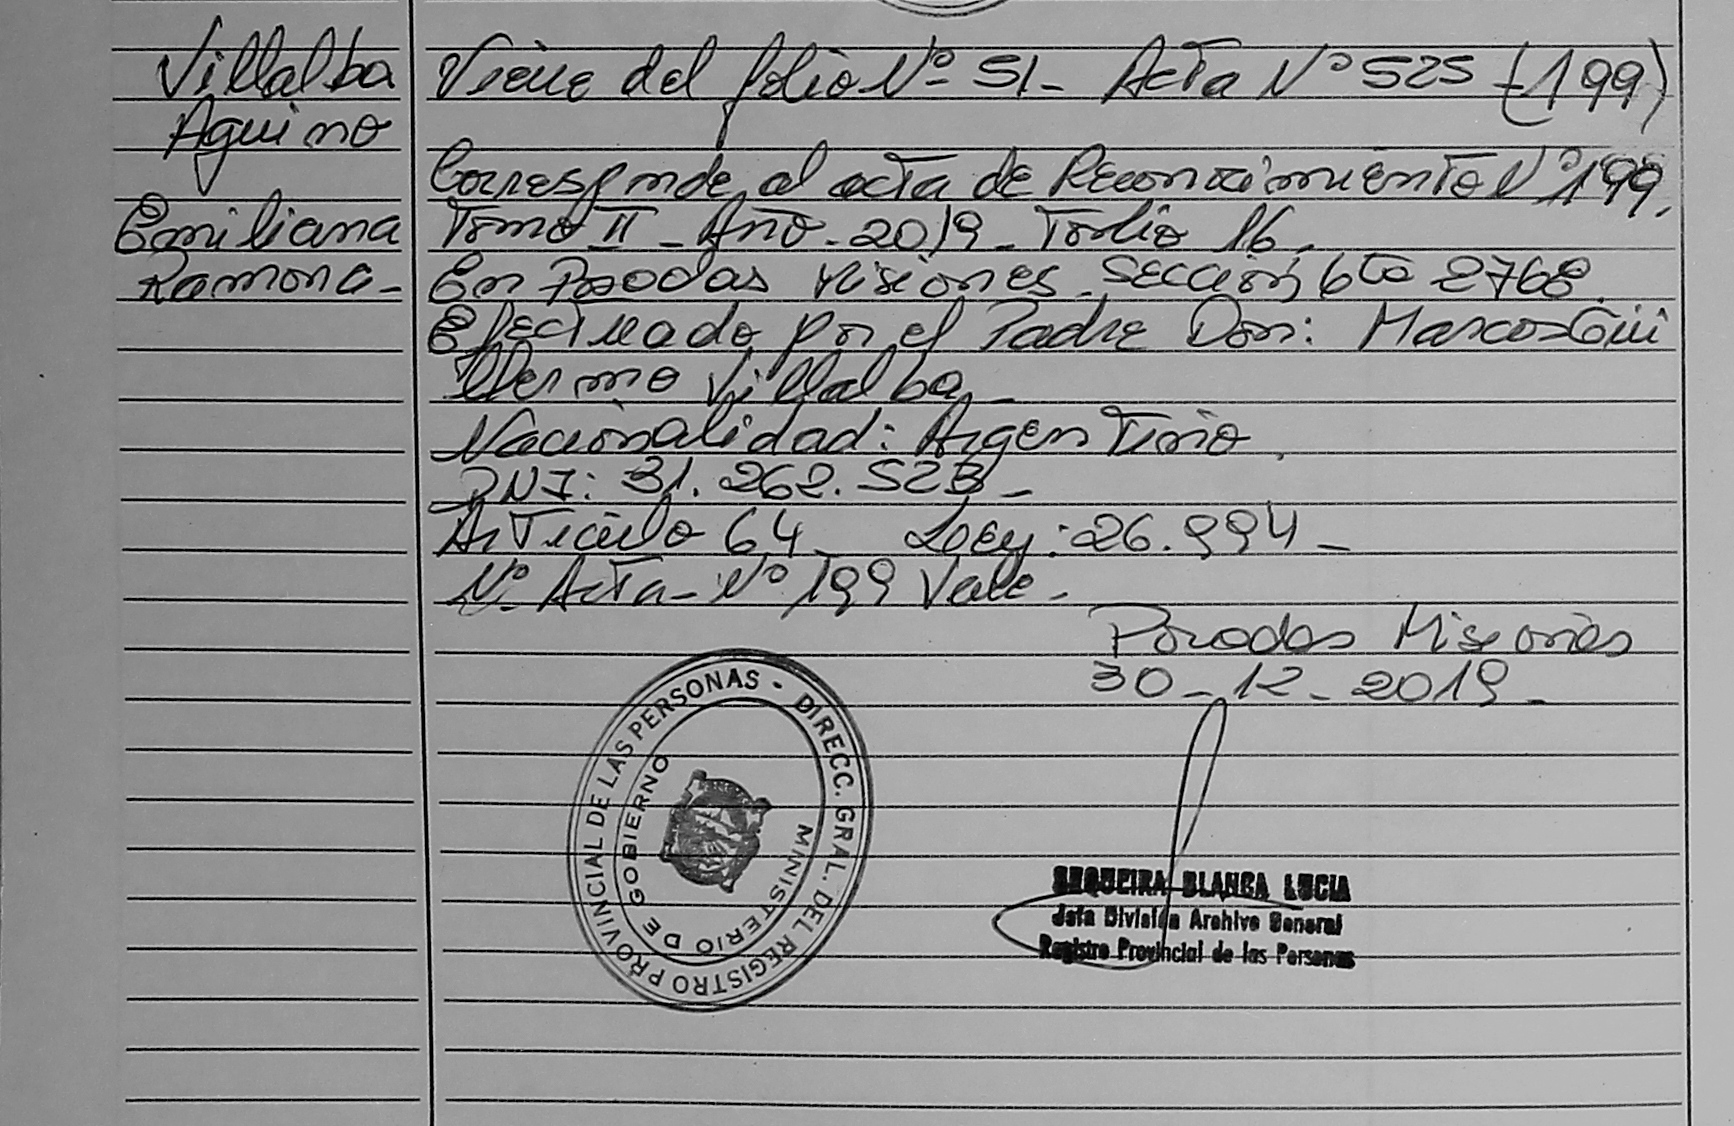 Villalba
Aquino
Emiliana
Ramona-
Viene del folio Nº 51- Acta Nº 525 (199)
Corresponde al acta de Reconocimiento Nº 199.
Tomo II - Año - 2019 - Folio 16.
En Posadas Misiones. Sección 6ta 2768.
Efectuado por el Padre Don: Marcos Gui
llermo Villalba -
Nacionalidad: Argentino.
DNI: 31.262.523 -
Artículo 64 - Ley: 26.994 -
Nº Acta - Nº 199 Vale -
Posadas Misiones
30-12-2019-
DIRECC. GRAL. DEL REGISTRO PROVINCIAL DE LAS PERSONAS -
MINISTERIO DE GOBIERNO
SEQUEIRA BLANCA LUCIA
Jefa División Archivo General
Registro Provincial de las Personas